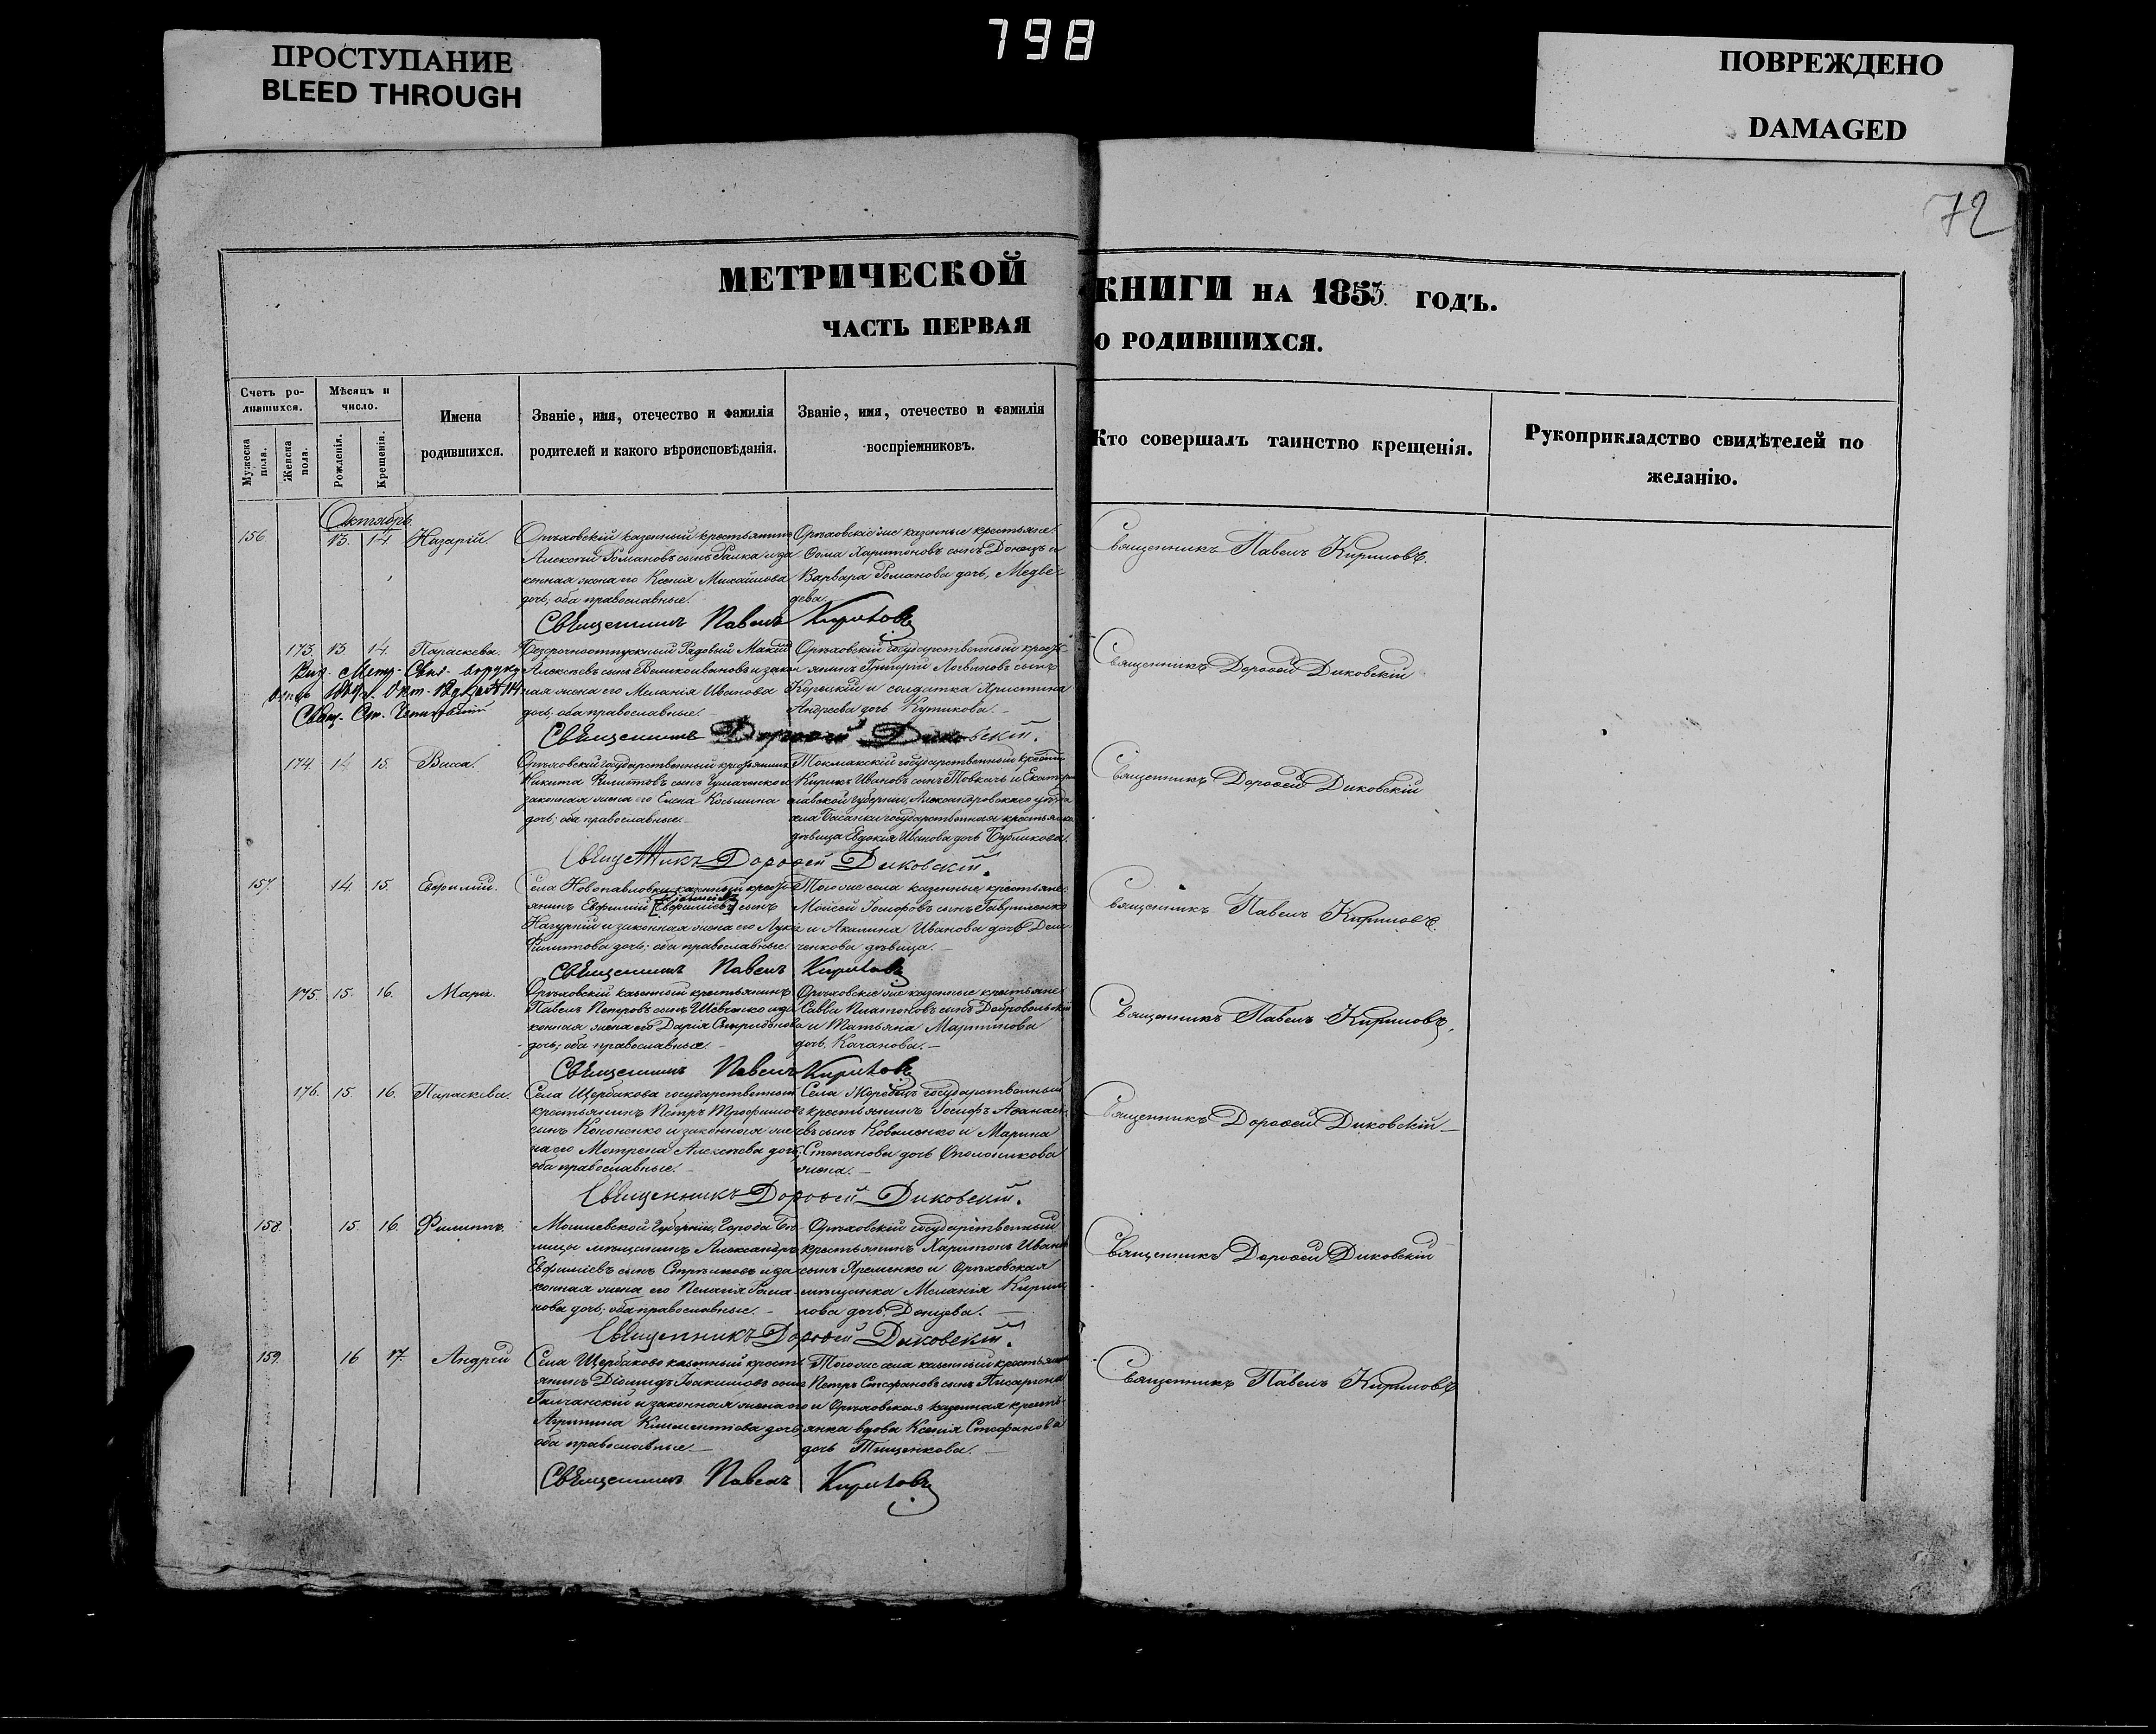 798
ПРОСТУПАНИЕ
BLEED THROUGH
ПОВРЕЖДЕНО
DAMAGED
72
МЕТРИЧЕСКОЙ КНИГИ НА 1853 ГОДЪ.
ЧАСТЬ ПЕРВАЯ О РОДИВШИХСЯ.
Счетъ ро-
дившихся.
Мужеска пола.
Женска пола.
Мѣсяцъ и
число.
Рожденія.
Крещенія.
Имена
родившихся.
Званіе, имя, отечество и фамилія
родителей и какого вѣроисповѣданія.
Званіе, имя, отечество и фамилія
воспріемниковъ.
Кто совершалъ таинство крещенія.
Рукоприкладство свидѣтелей по
желанію.
Октябрь.
156 13. 14 Назарій.
Орѣховскій казенный крестьянинъ
Алексѣй Романовъ сынъ и за
конная жена его Ксенія Михайлова
дочь; оба православные.
Орѣховскіе же казенные крестьяне:
Харитоновъ сынъ Донецъ и
Варвара Романова дочь, Медве-
дева.
Священникъ Павелъ Кириловъ.
Священникъ Павелъ Кириловъ
173. 13. 14. Параскева.
Безсрочноотпускной Рядовый
Алексѣевъ сынъ и закон
ная жена его Меланія Иванова
дочь, оба православные.
Орѣховскій государственный кресть-
янинъ Григорій сынъ
и солдатка Христина
Андреева дочь Кутикова.
Священникъ Дороѳей Диковскій
Священникъ Дороѳей Диковскій.
174. 14 15. Васса.
Орѣховскій государственный крестьянинъ
Никита Филиповъ сынъ и
законная жена его Елена Косьмина
дочь; оба православные.
Токмакскій государственный
Кирикъ Ивановъ сынъ Товкачъ и Екатери
славской губерніи, Александровскаго уѣзда
села Басанки государственная крестьянка
дѣвица Евдокія Иванова дочь Бубликова.
Священникъ Дороѳей Диковскій
Священникъ Дороѳей Диковскій.
157. 14 15. Евфимій.
Села Новопавловки казенный кресть-
янинъ Евфимій [Евфиміевъ] сынъ
и законная жена его
Филипова дочь; оба православные.
Того же села казенные крестьяне:
Моисей Іосифовъ сынъ Гавриленко
и Акилина Иванова дочь
ченкова дѣвица.
Священникъ Павелъ Кириловъ.
Священникъ Павелъ Кириловъ
175. 15. 16. Марія.
Орѣховскій казенный крестьянинъ
Павелъ Петровъ сынъ Шевченко и за
конная жена его Дарія Спиридонова
дочь; оба православные.
Орѣховскіе же казенные крестьяне:
Савва Платоновъ сынъ Добровольскій
и Татьяна Мартинова
дочь, Качанова.
Священникъ Павелъ Кириловъ.
Священникъ Павелъ Кириловъ
176. 15. 16. Параскева.
Села Щербакова государственный
крестьянинъ Петръ Трофимовъ
сынъ Кононенко и законная же
на его Мотрена Алексѣева дочь;
оба православные.
Села государственный
крестьянинъ Іосифъ Аѳанасі
евъ сынъ Коваленко и Марина
Степанова дочь Ополоникова
жена.
Священникъ Дороѳей Диковскій
Священникъ Дороѳей Диковскій.
158. 15. 16. Филиппъ.
Могилевской губерніи, города
мѣщанинъ Александръ
Евфиміевъ сынъ и за
конная жена его Пелагія Рома
нова дочь; оба православные.
Орѣховскій государственный
крестьянинъ Харитонъ
сынъ Яременко и Орѣховская
мѣщанка Меланія Кирил
лова дочь Донцева.
Священникъ Дороѳей Диковскій
Священникъ Дороѳей Диковскій.
159. 16 17. Андрей
Села Щербаково казенный кресть
янинъ Діомидъ Іоакимовъ сынъ
и законная жена его
Агрипина Климентіева дочь
оба православные.
Того же села казенный крестьянинъ
Петръ Стефановъ сынъ
и Орѣховская казенная кресть-
янка вдова Ксенія Стефанова
дочь Тищенкова.
Священникъ Павелъ Кириловъ
Священникъ Павелъ Кириловъ